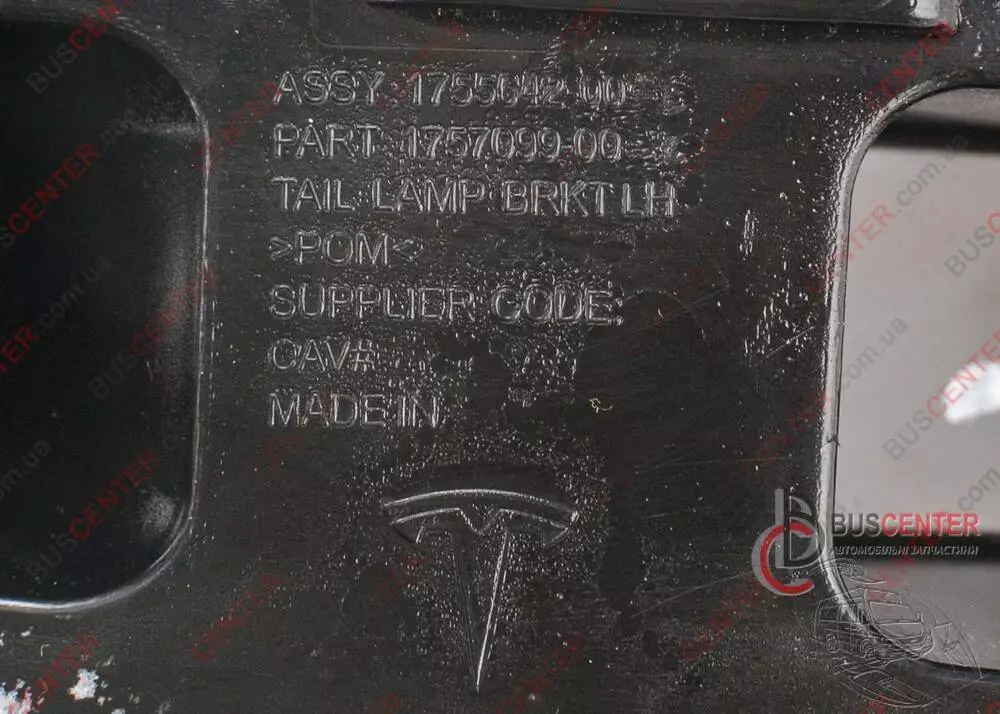 ASSY 1755642-00
PART 1757099-00
TAIL LAMP BRKT LH
>POM<
SUPPLIER CODE:
CAV#
MADE IN
BUSCENTER
АВТОМОБІЛЬНІ ЗАПЧАСТИНИ